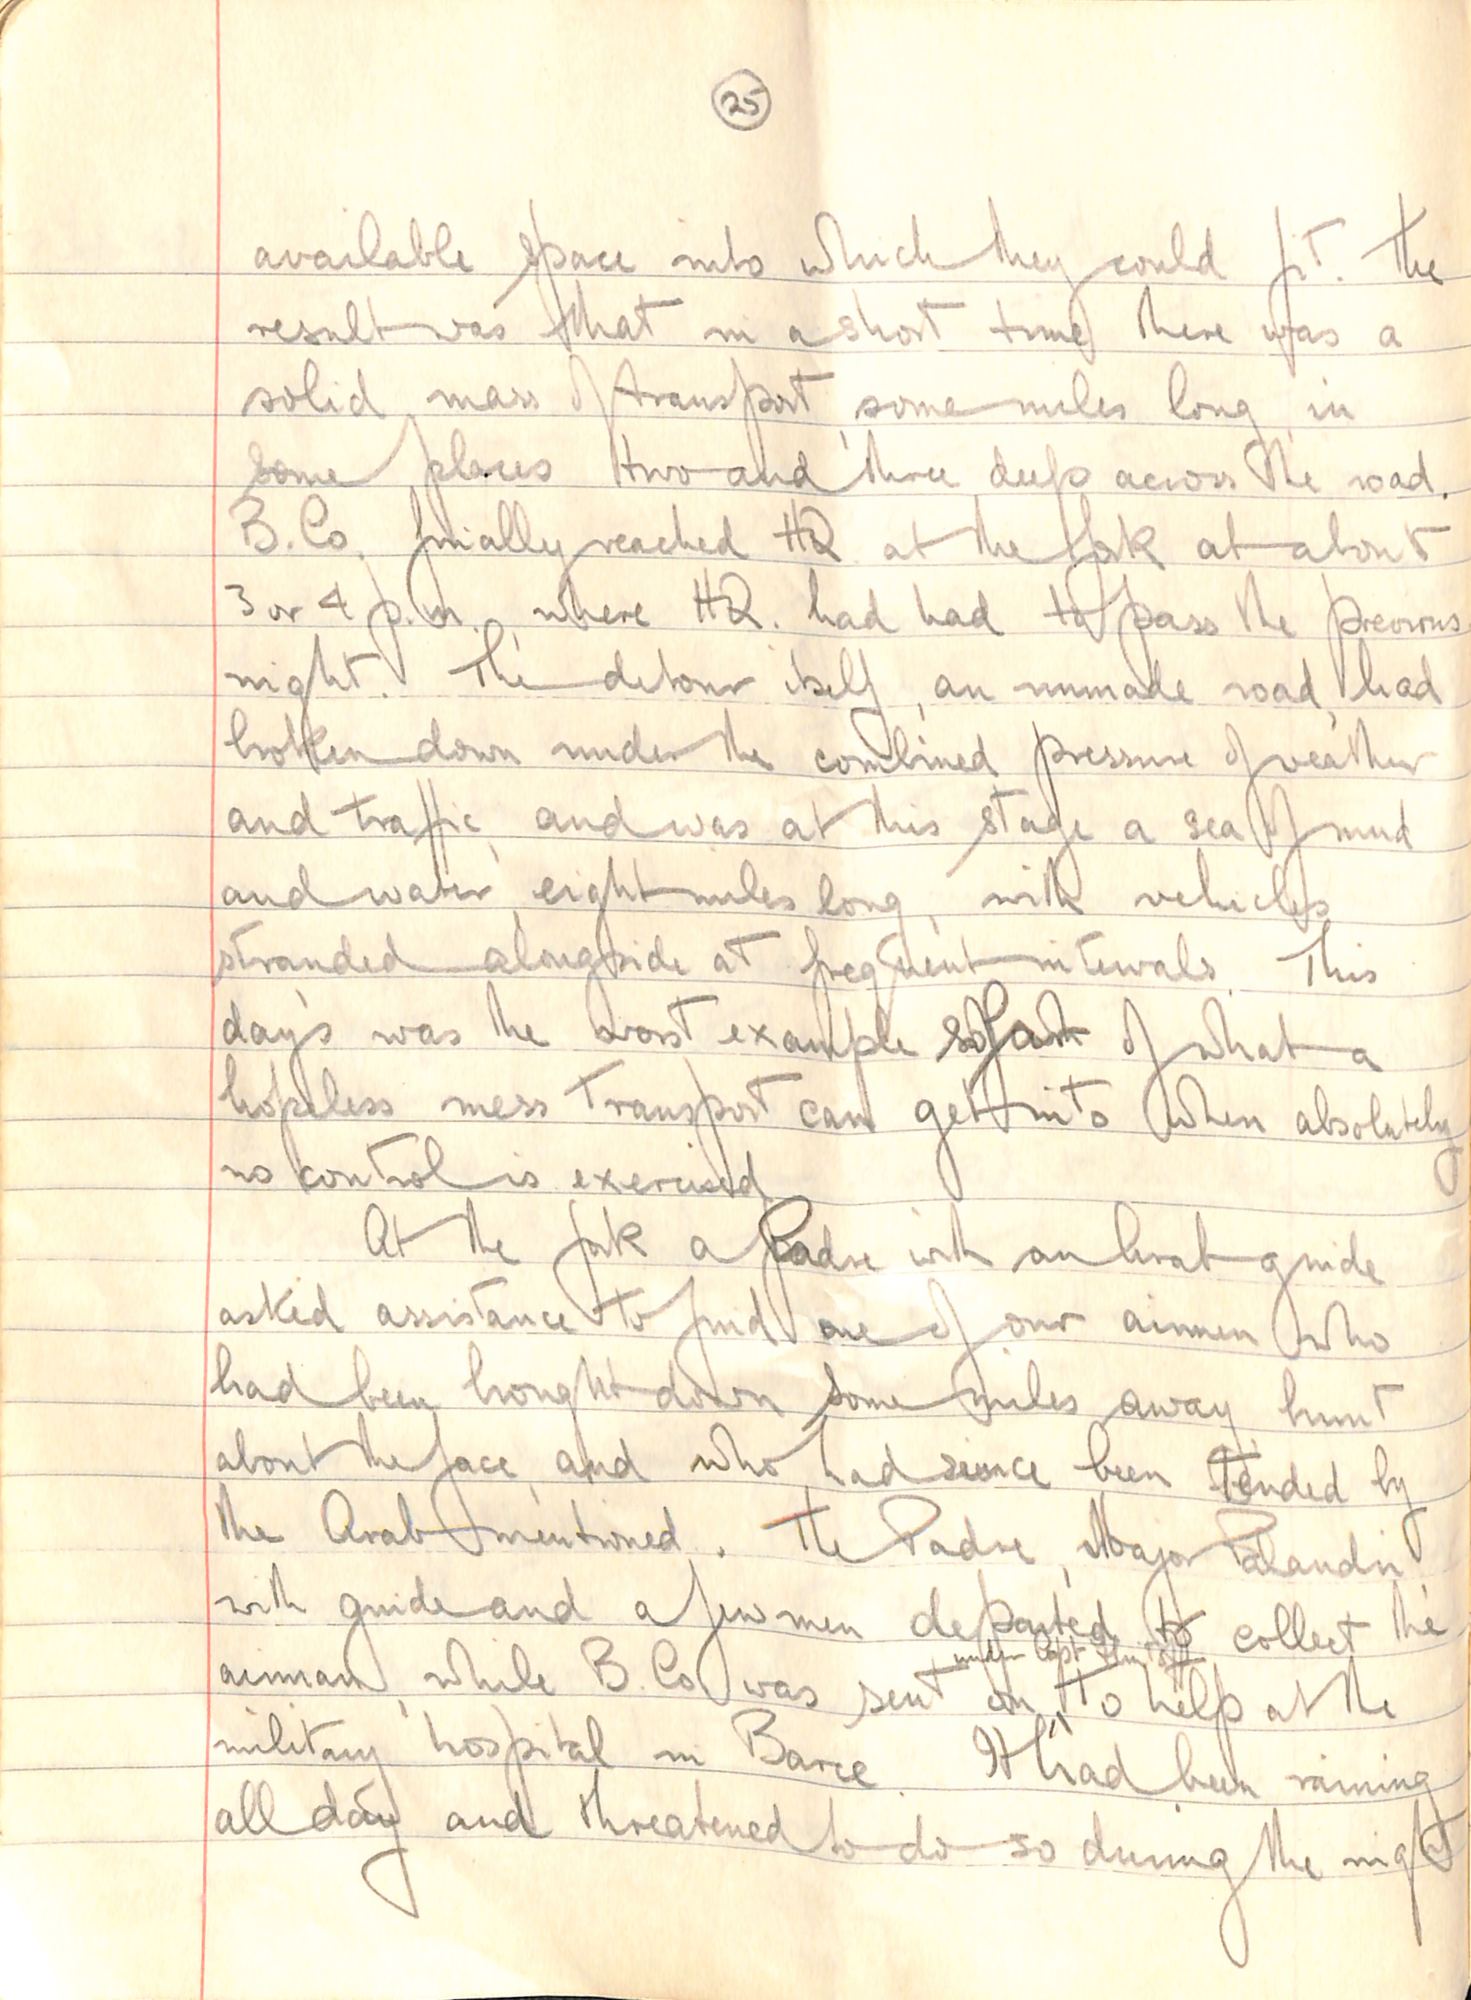 25
available space into which they could fit. The
result was that in a short time there was a
solid mass of transport some miles long, in
some places two and three deep across the road.
B. Co. finally reached HQ at the fork at about
3 or 4 p.m., where HQ. had had to pass the previous
night. The detour itself, an unmade road, had
broken down under the combined pressure of weather
and traffic, and was at this stage a sea of mud
and water, eight miles long, with vehicles
stranded alongside at frequent intervals. This
day's was the worst example so far of what a
hopeless mess transport can get into when absolutely
no control is exercised.
At the fork a Padre with an Arab guide
asked assistance to find one of our airmen who
had been brought down some miles away, hurt
about the face, and who had since been tended by
the Arab mentioned. The Padre, Major
with guide and a few men departed to collect the
under Capt
airman, while B. Co was sent on to help at the
military hospital in Barce. It had been raining
all day and threatened to do so during the night